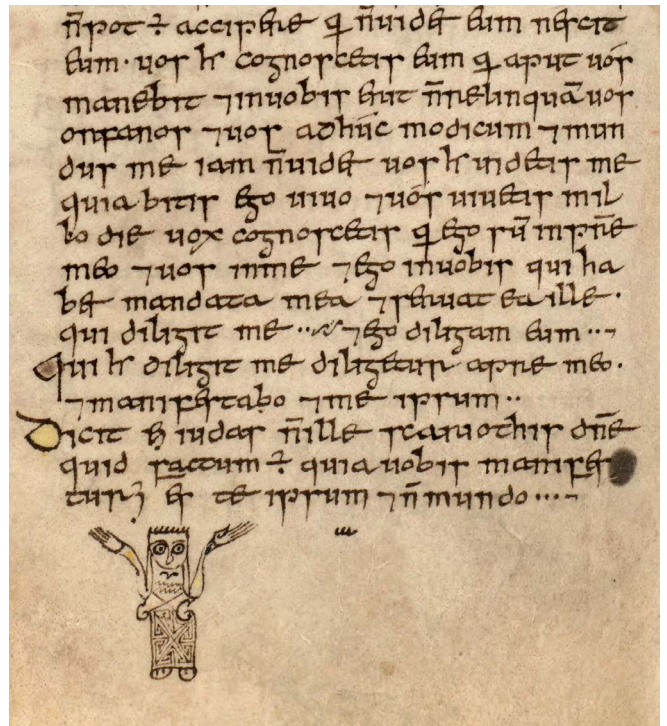 n̄ pot ÷ accipere q̄ n̄ uidet eum nescit
eum · uos h̄ cognoscetis eum q̄ aput uos
manebit ⁊ inuobis erit n̄ relinquā uos
orfanos ⁊ uos adhuc modicum ⁊ mun
dus me iam n̄ uidet uos h̄ uidetis me
quia bitis ego uiuo ⁊ uos uiuetis in il
lo die uox cognoscetis q̄ ego sū inp̄re
meo ⁊ uos inme ⁊ ego inuobis qui ha
bet mandata mea ⁊ seruat ea ille ·
qui diligit me ·· ⁊ ego diligam eum ·· ⁊
Qui h̄ diligit me diligetur ap̄re meo ·
⁊ manifestabo ⁊ me ipsum ··
Dicit ei iudas n̄ ille scariothis dn̄e
quid factum ÷ quia uobis manifes
turus es te ipsum ⁊ n̄ mundo ····